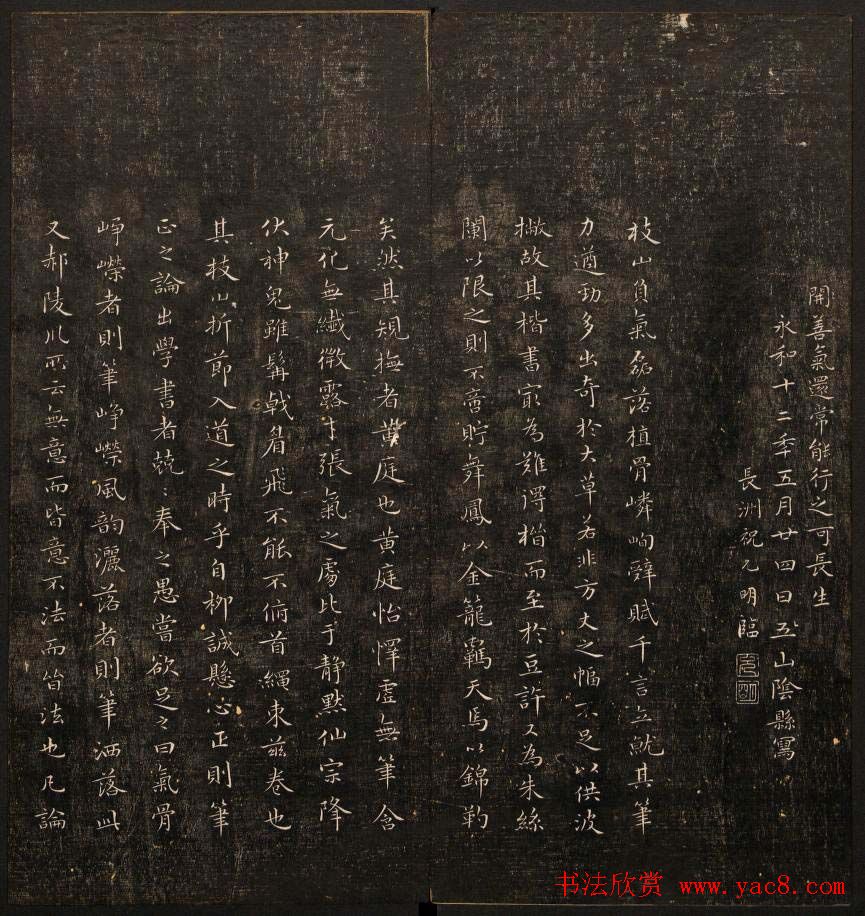 開善氣還常能行之可長生
永和十二年五月廿四日五山陰縣寫
長洲祝允明臨
枝山負氣磊落植骨嶙峋辭賦千言立就其筆
力遒勁多出奇於大草若非方丈之幅不足以供波
撇故其楷書㝡為難得楷而至於豆許又為朱絲
闌以限之則不啻貯舞鳳以金籠羈天馬以錦勒
矣然其規撫者黃庭也黃庭怡懌虛無筆含
元化無纖微露才張氣之處比于静默仙宗降
伏神鬼雖髯戟眉飛不能不俯首繩束茲卷也
其枝山折節入道之時乎自柳誠懸心正則筆
正之論出學書者兢〻奉之愚嘗欲足之曰氣骨
崢嶸者則筆崢嶸風韵灑落者則筆洒落此
又郝陵川所云無意而皆意不法而皆法也凡論
书法欣赏 www.yac8.com